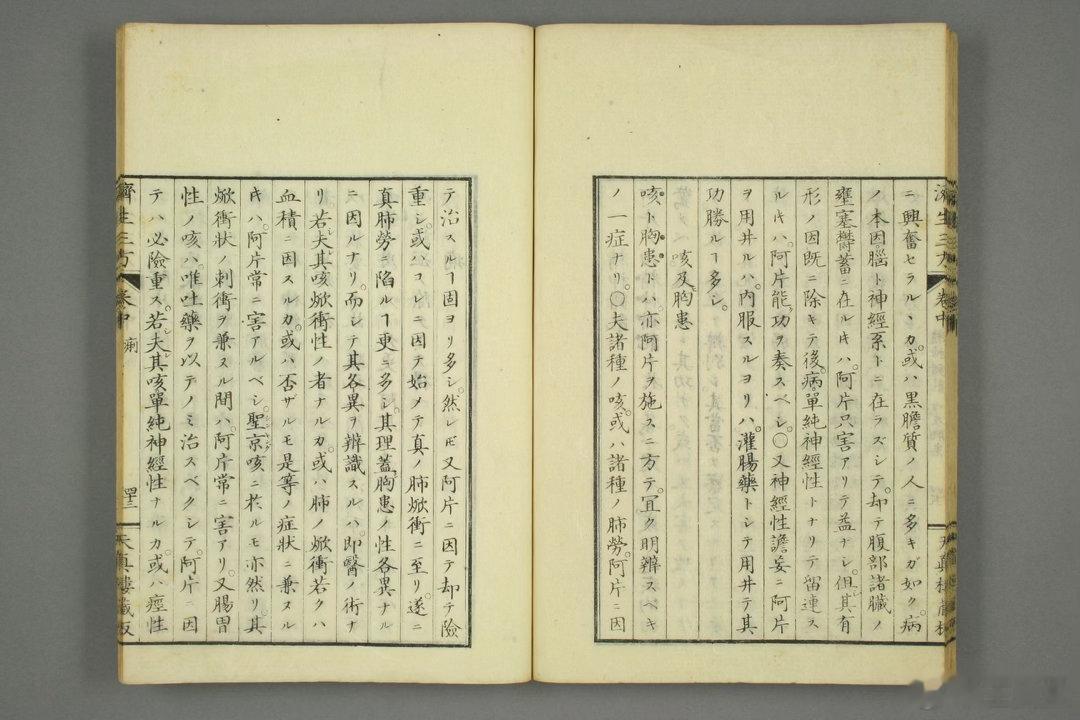 ニ興奮セラルヽカ。或ハ黒膽質ノ人ニ多キガ如ク。病
ノ本因。腦ト神經系トニ在ラズシテ。却テ腹部諸臓ノ
壅塞欝蓄ニ在ルキハ。阿片只害アリテ益ナシ。但其有
形ノ因既ニ除キテ後。病單純神經性トナリテ留連ス
ルキハ。阿片能功ヲ奏スベシ。〇又神經性譫妄ニ阿片
ヲ用井ルハ。内服スルヨリハ。灌腸藥トシテ用井テ其
功勝ルヿ多シ。
咳及胸患
咳ト胸患トハ。亦阿片ヲ施スニ方テ。冝ク明辨スベキ
ノ一症ナリ。〇夫諸種ノ咳。或ハ諸種ノ肺勞。阿片ニ因
濟生三方
卷中
テ治スルヿ固ヨリ多シ。然レㄭ又阿片ニ因テ却テ險
重シ。或ハコレニ因テ始メテ真ノ肺焮衝ニ至リ。遂ニ
真肺勞ニ陷ルヿ更ニ多シ。其理蓋胸患ノ性各異ナル
ニ因ルナリ。而シテ其各異ヲ辨識スルハ。即醫ノ術ナ
リ若夫其咳焮衝性ノ者ナルカ。或ハ肺ノ焮衝若クハ
血積ニ因スルカ。或ハ否ザルモ是等ノ症状ニ兼ヌル
キハ。阿片常ニ害アルベシ。聖京咳ニ於ルモ亦然リ。其
焮衝状ノ刺衝ヲ兼スル間ハ。阿片常ニ害アリ。又腸胃
性ノ咳ハ唯吐藥ヲ以テノミ治スベクシテ。阿片ニ因
テハ必險重ス。若夫其咳單純神經性ナルカ。或ハ痙性
濟生三方
卷中
痢
四十三
天真樓藏板